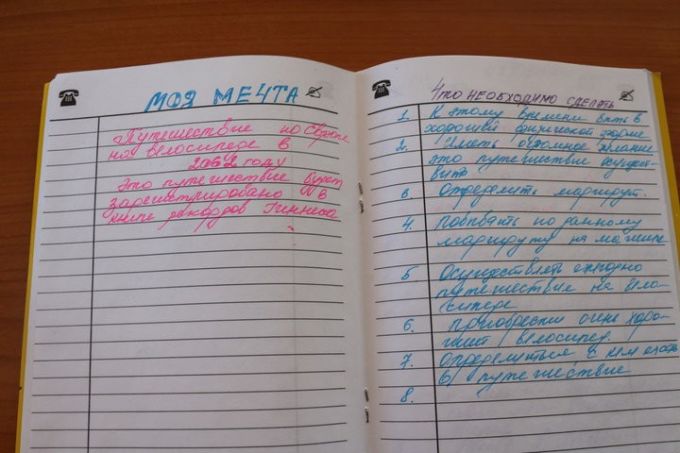 МОЯ МЕЧТА
Путешествие по Европе
на велосипеде в
2032 году
Это путешествие будет
зарегистрировано в
книге рекордов Гиннесса
Что НЕОБХОДИМО СДЕЛАТЬ
1. К этому времени быть в
хорошей физической форме
2. Иметь огромное желание
это путешествие осущест-
вить
3. Определить маршрут.
4. Побывать по данному
маршруту на машине
5 Осуществлять ежегодно
путешествие на вело-
сипеде
6. Приобрести очень хоро-
ший велосипед.
7. Определиться с кем ехать
в путешествие
8.